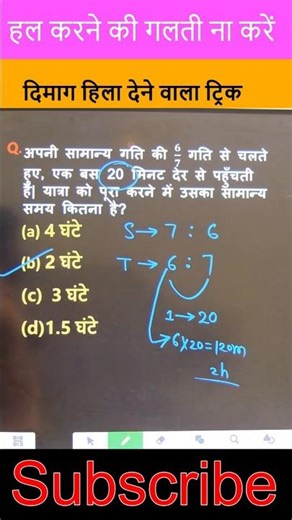 हल करने की गलती ना करें
दिमाग हिला देने वाला ट्रिक
Q. अपनी सामान्य गति की 6/7 गति से चलते
हुए, एक बस 20 मिनट देर से पहुँचती
है| यात्रा को पूरा करने में उसका सामान्य
समय कितना है?
(a) 4 घंटे
S → 7 : 6
(b) 2 घंटे
T → 6 : 7
(c) 3 घंटे
1 → 20
(d) 1.5 घंटे
→ 6 × 20 = 120m
2h
Subscribe